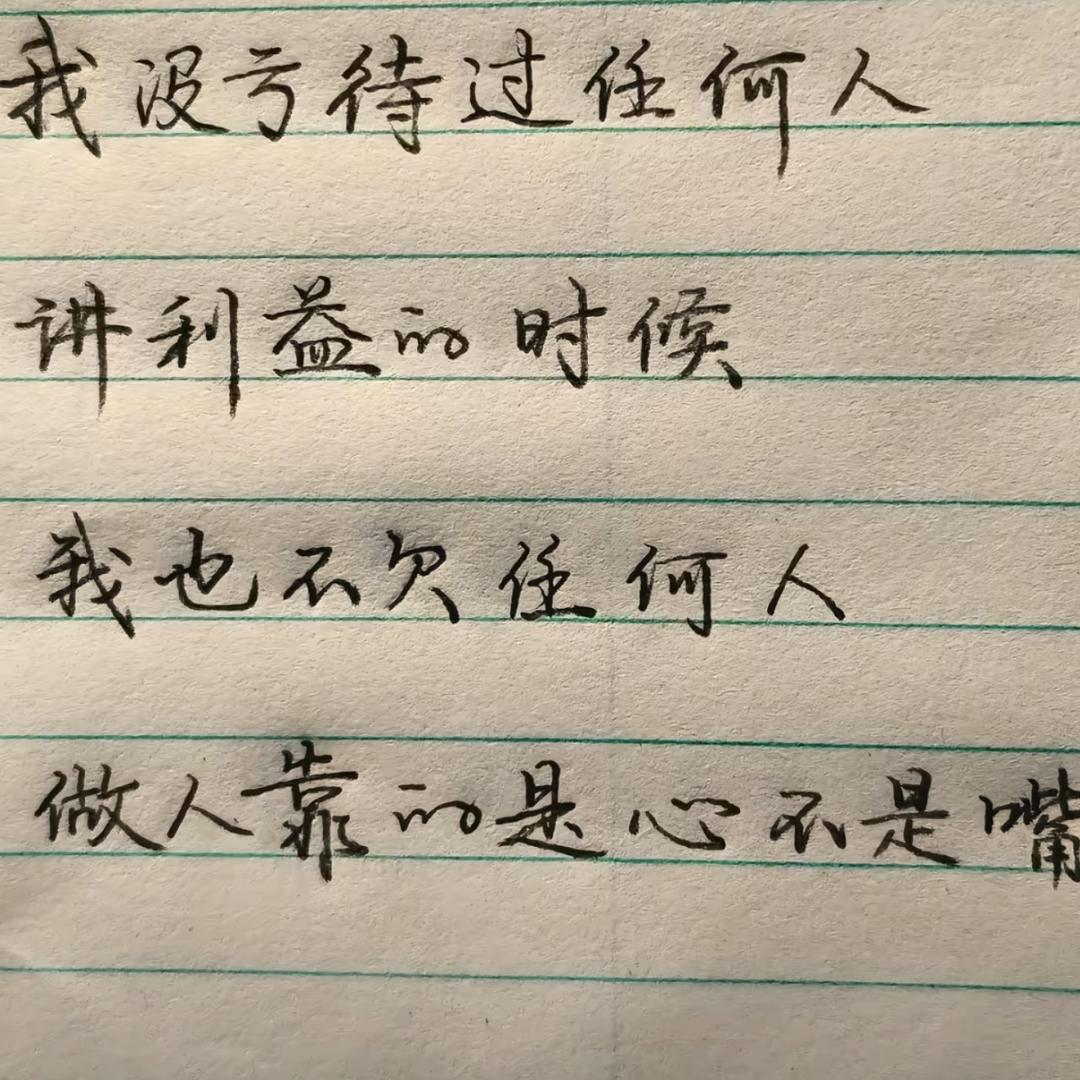 我没亏待过任何人
讲利益的时候
我也不欠任何人
做人靠的是心不是嘴